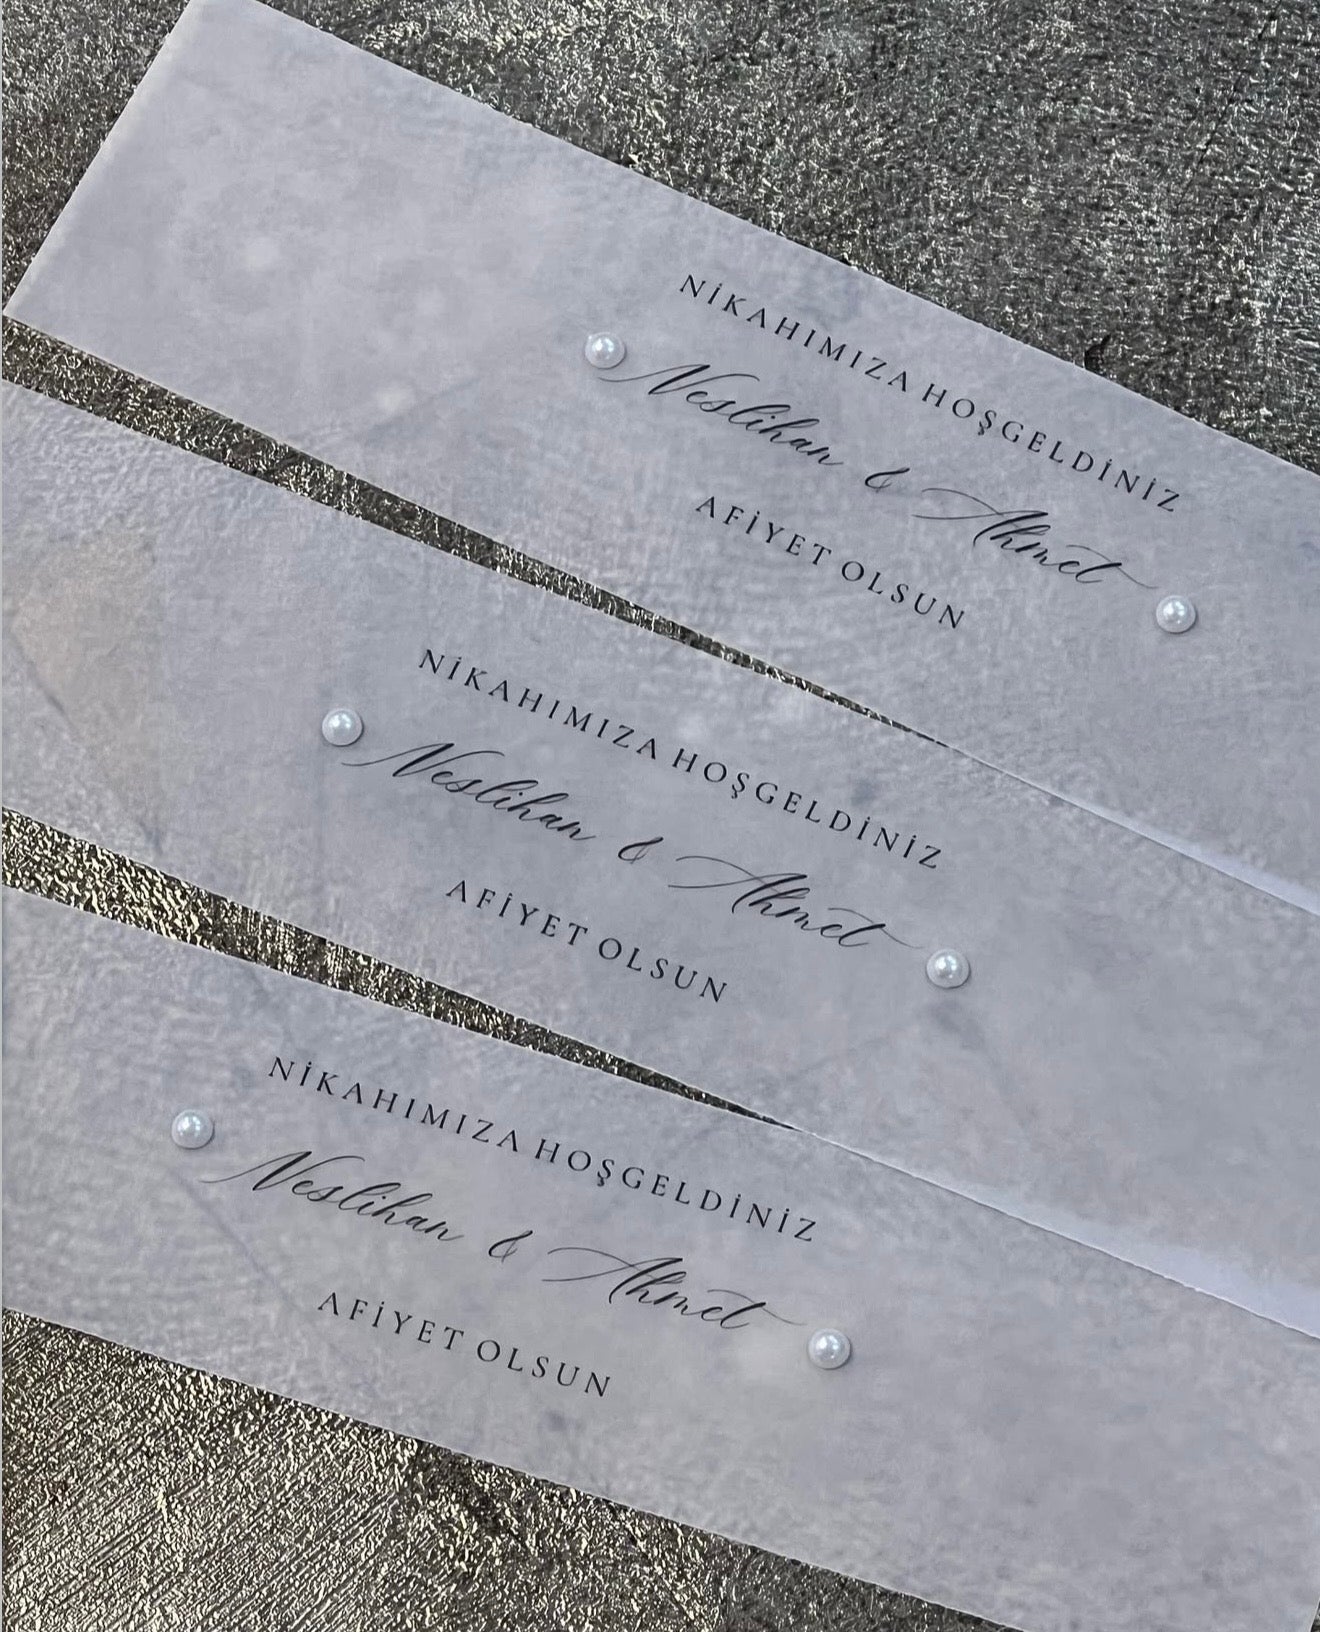 NİKAHIMIZA HOŞGELDİNİZ
Neslihan & Ahmet
AFİYET OLSUN
NİKAHIMIZA HOŞGELDİNİZ
Neslihan & Ahmet
AFİYET OLSUN
NİKAHIMIZA HOŞGELDİNİZ
Neslihan & Ahmet
AFİYET OLSUN